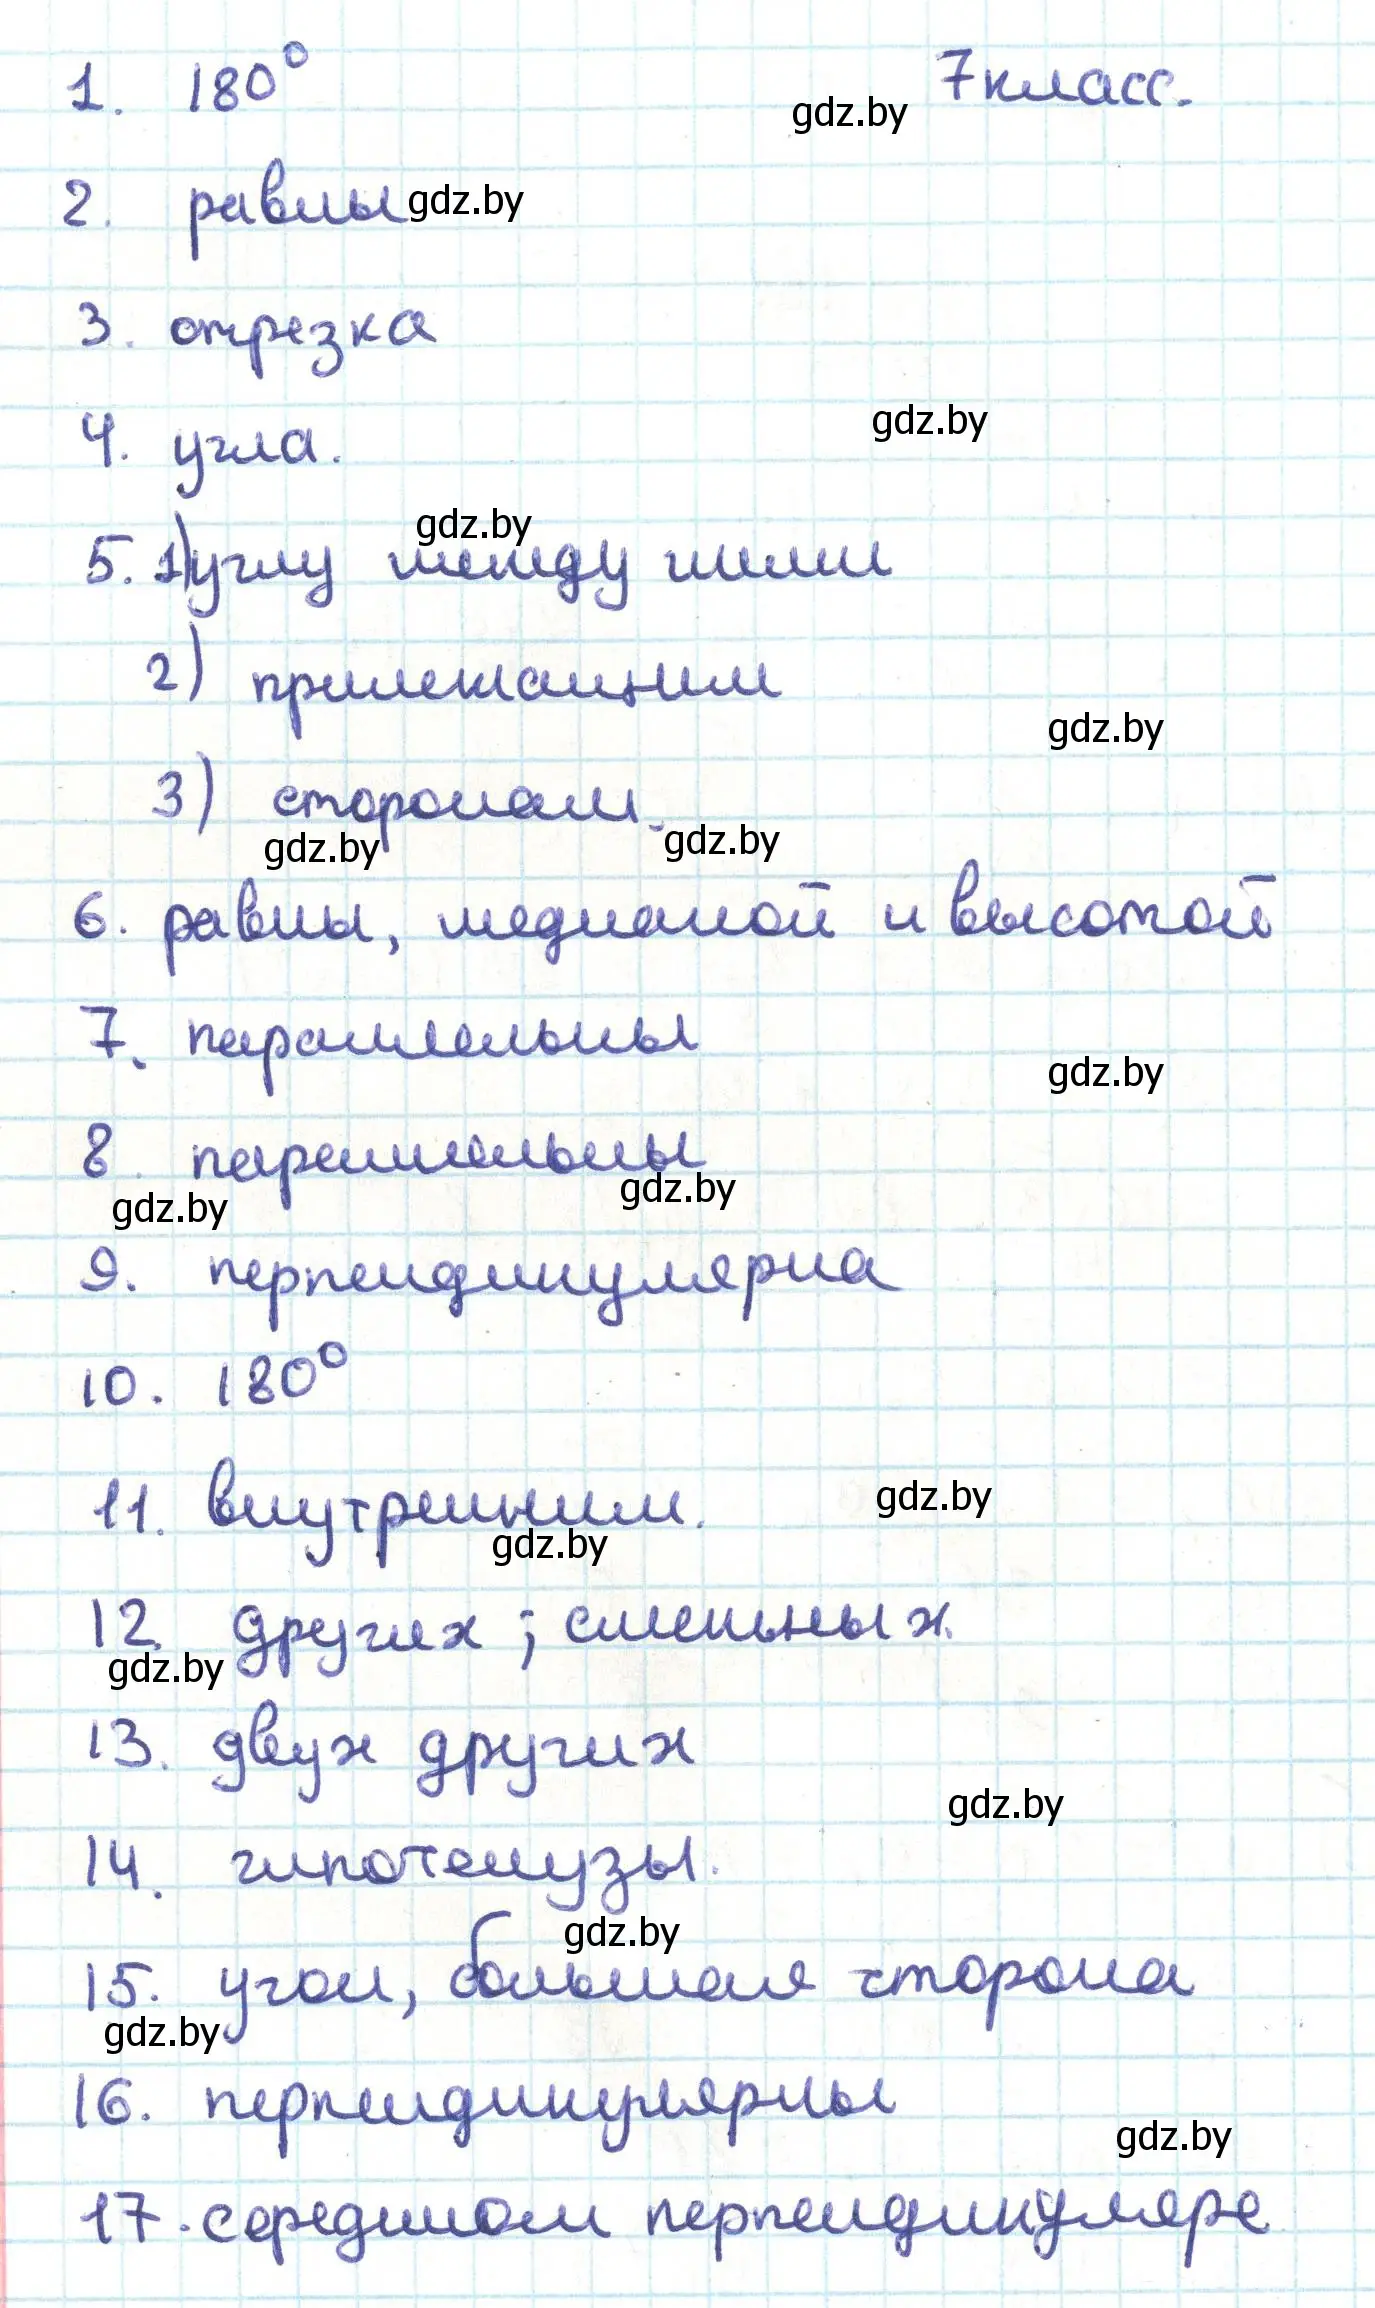 1. 180° 7 класс.
gdz.by
2. равны gdz.by
3. отрезка
4. угла.
gdz.by
gdz.by
5. 1) углу между ними
2) прилежащим
gdz.by
3) сторонам.
gdz.by gdz.by
6. равны, медианой и высотой
7. параллельны
gdz.by
8. параллельны
gdz.by gdz.by
9. перпендикулярна
10. 180°
11. внутренним.
gdz.by
gdz.by
12. других; смежных.
gdz.by
13. двух других
gdz.by
14. гипотенузы.
gdz.by
15. угол, большая сторона
gdz.by
16. перпендикулярны
gdz.by
17. серединном перпендикуляре